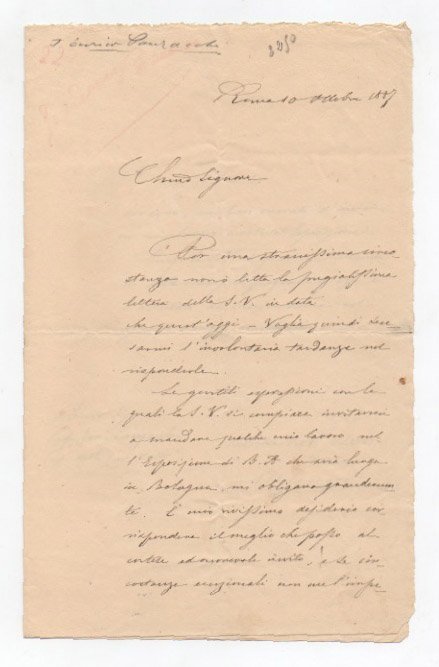 Enrico
3250
Roma 10 Ottobre 1887
Chmo Signore
Per una stranissima circo-
stanza non ò letta la pregiatissima
lettera della S. V. in data
che quest'oggi – Voglia quindi scu-
sarmi l'involontaria tardanza nel
risponderle.
Le gentili espressioni con le
quali la S. V. si compiace invitarmi
a mandare qualche mio lavoro nel
l'Esposizione di B. A che avrà luogo
in Bologna, mi obligano grandemen-
te. È mio vivissimo desiderio cor-
rispondere il meglio che posso al
cortese ed onorevole invito, e se cir-
costanze eccezionali non me l'impe-